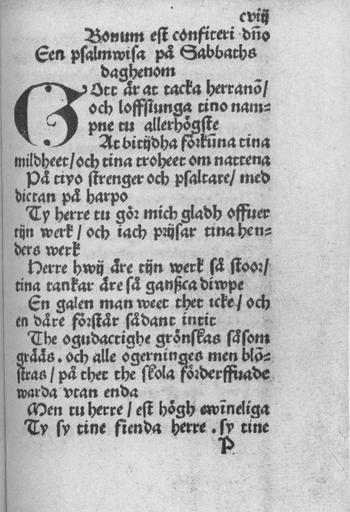 cviij
Bonum est confiteri dño
Een psalmwisa på Sabbaths
daghenom
GOtt är at tacka herranõ/
och loffsiunga tino nam-
pne tu allerhögste
At bitijdha förkũna tina
mildheet/och tina troheet om nattena
På tiyo strenger och psaltare/ med
dictan på harpo
Ty herre tu gör mich gladh offuer
tijn werk/ och iach prijsar tina hen-
ders werk
Herre hwij äre tijn werk så stoor/
tina tankar äre så ganßca diwpe
En galen man weet thet icke/ och
en dåre förstår sådant intit
The ogudactighe grönskas såsom
grääs. och alle ogerninges men blõ-
stras/ på thet the skola förderffuade
warda vtan enda
Men tu herre/ est högh ewĩneliga
Ty sy tine fienda herre. sy tine
P